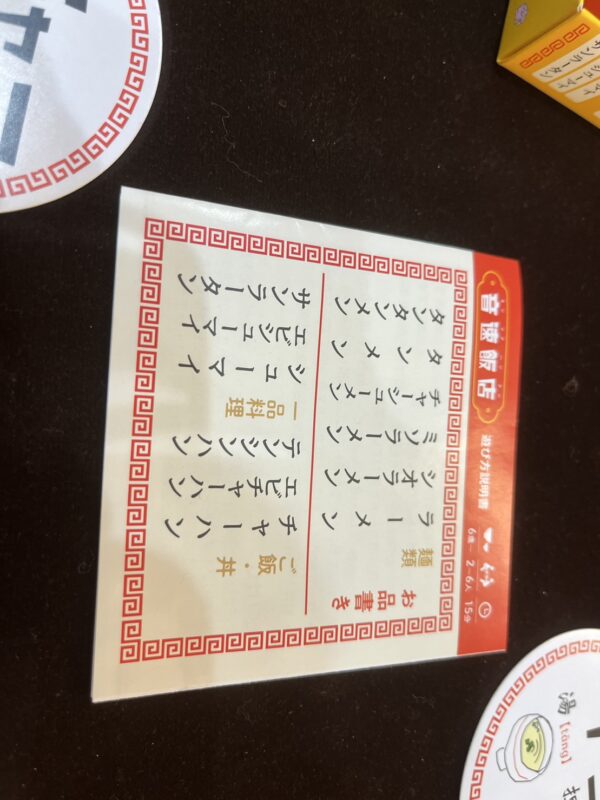 音速飯店
遊び方説明書
6歳〜 2-6人 15分
お品書き
麺類
ラーメン
シオラーメン
ミソラーメン
チャーシューメン
タンメン
タンタンメン
ご飯・丼
チャーハン
エビチャーハン
テンシンハン
一品料理
シューマイ
エビシューマイ
サンラータン
サンラータン
湯
[tāng]